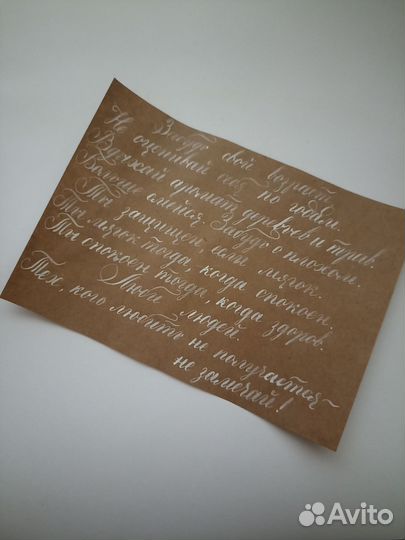 Забудь свой возраст.
Не оценивай себя по годам.
Вдыхай аромат деревьев и трав.
Больше смейся. Забудь о плохом.
Ты защищен, если мягок.
Ты мягок тогда, когда спокоен.
Ты спокоен тогда, когда здоров.
Люби людей.
Тех, кого любить не получается -
не замечай!
Avito